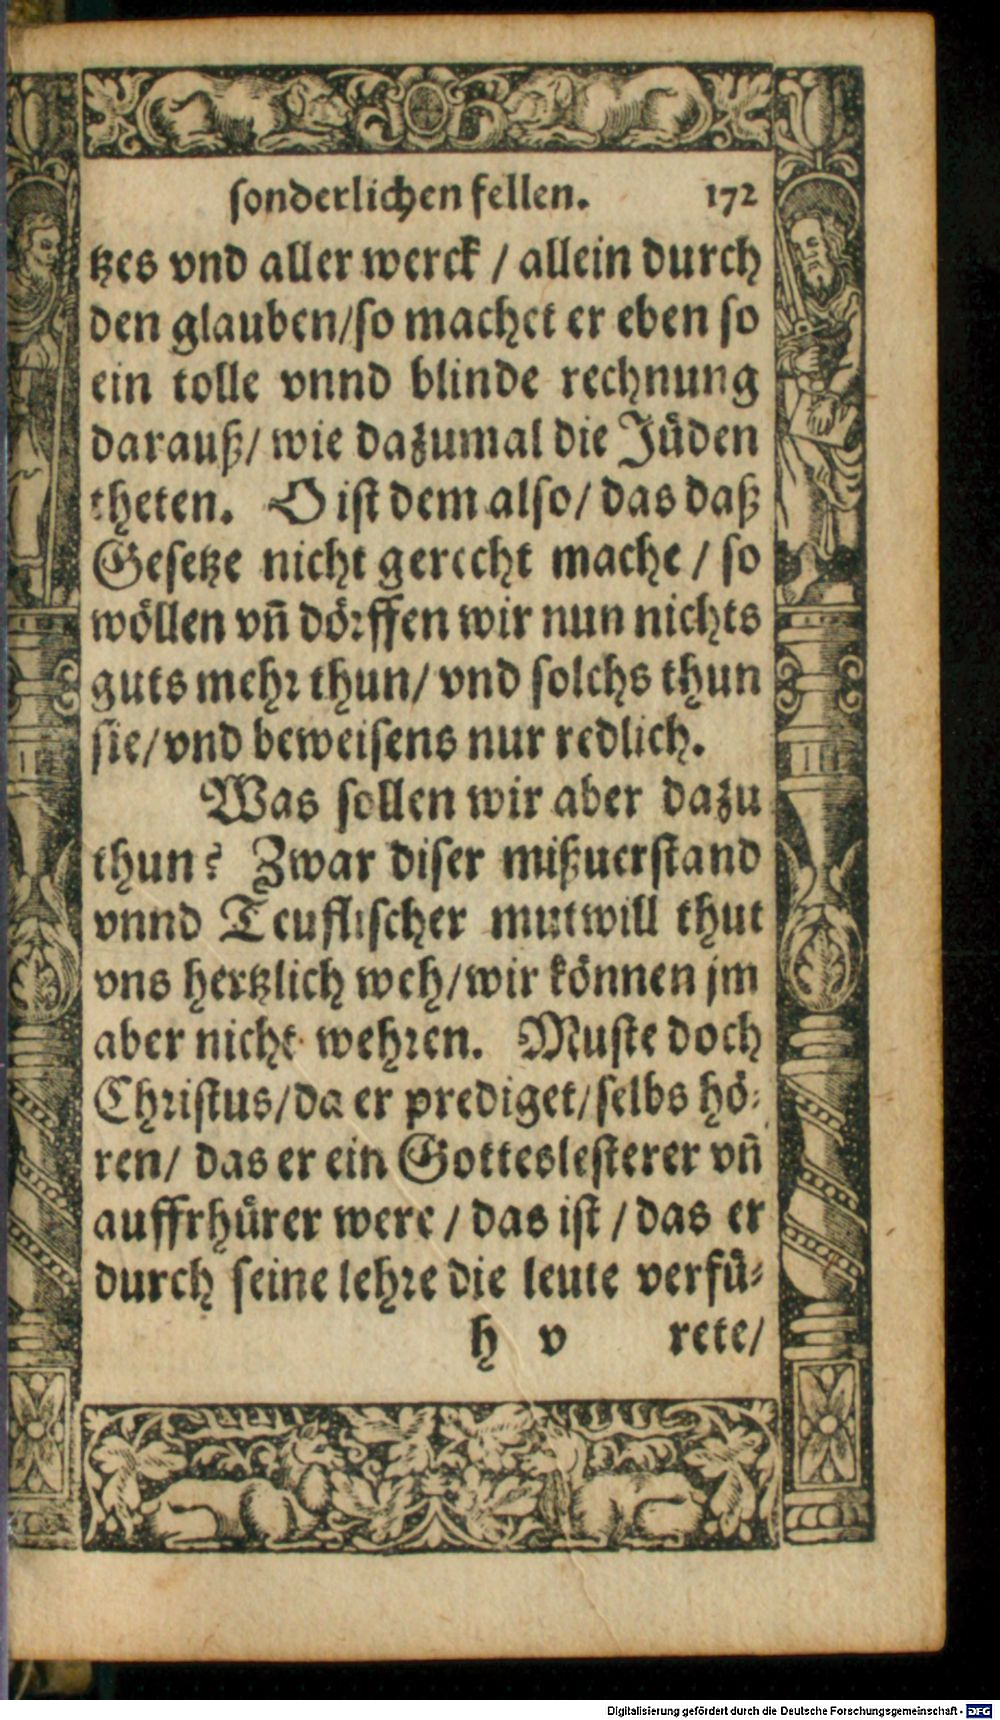 sonderlichen fellen. 172
tzes vnd aller werck / allein durch
den glauben/so machet er eben so
ein tolle vnnd blinde rechnung
darauß/ wie dazumal die Jüden
theten. O ist dem also/ das daß
Gesetze nicht gerecht mache / so
wöllen vn̄ dörffen wir nun nichts
guts mehr thun/ vnd solchs thun
sie/vnd beweisens nur redlich.
Was sollen wir aber dazu
thun? Zwar diser mißuerstand
vnnd Teuflischer mutwill thut
vns hertzlich weh/wir können jm
aber nicht wehren. Muste doch
Christus/da er prediget/selbs hö-
ren/ das er ein Gotteslesterer vn̄
auffrhürer were / das ist / das er
durch seine lehre die leute verfü-
h v rete/
Digitalisierung gefördert durch die Deutsche Forschungsgemeinschaft - DFG